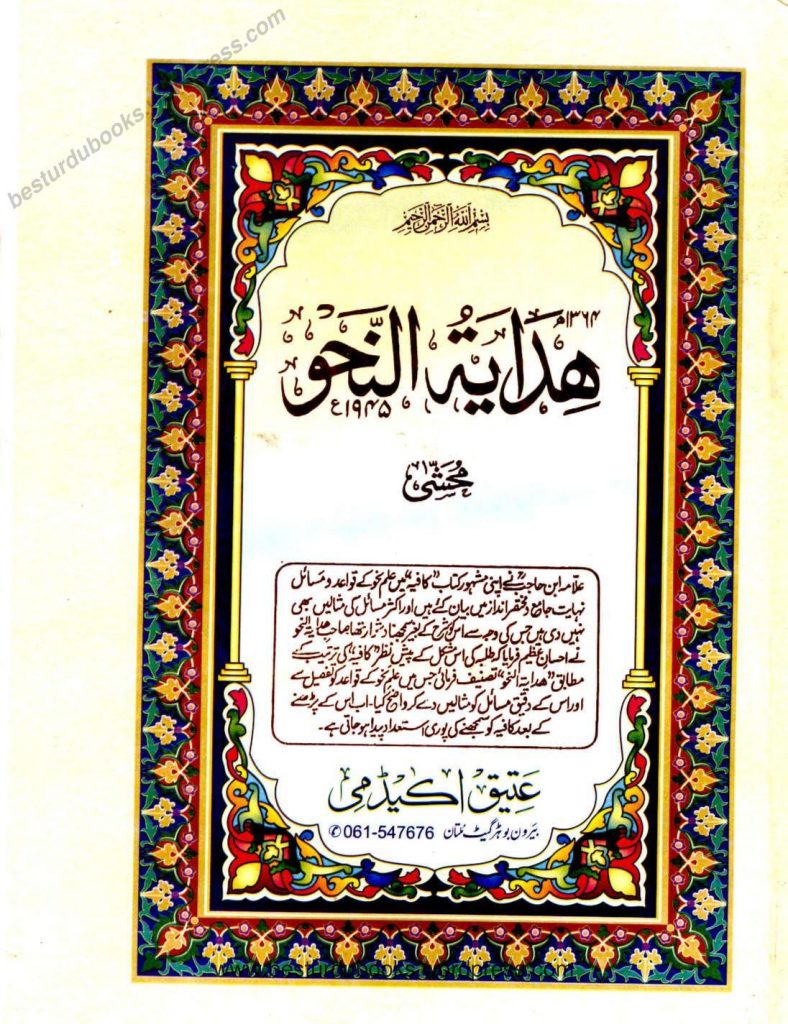 besturdubooks.wordpress.com
بسم الله الرحمن الرحيم
۱۳۶۴م
هداية النحو
۱۹۴۵ء
محشی
علامہ ابن حاجبؒ نے اپنی مشہور کتاب "کافیہ" میں علم نحو کے قواعد و مسائل
نہایت جامع و مختصر انداز میں بیان کئے ہیں اور اکثر مسائل کی مثالیں بھی
نہیں دی ہیں جس کی وجہ سے اس کو شرح کے بغیر سمجھنا دشوار تھا صاحب ہدایۃ النحو
نے احسان عظیم فرمایا کہ طلبہ کی اس مشکل کے پیش نظر "کافیہ" کی ترتیب کے
مطابق "هداية النحو" تصنیف فرمائی جس میں علم نحو کے قواعد کو تفصیل سے
اور اس کے دقیق مسائل کو مثالیں دے کر واضح کیا۔ اب اس کے پڑھنے
کے بعد کافیہ کو سمجھنے کی پوری استعداد پیدا ہو جاتی ہے۔
عتیق اکیڈمی
بیرون بوہڑ گیٹ ملتان ✆ 061-547676